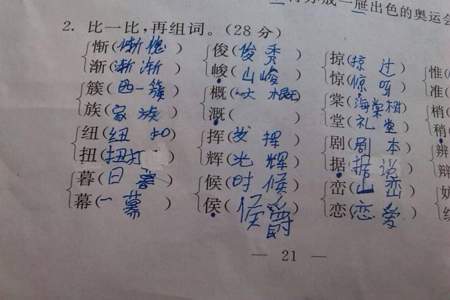 出色的奥运会
2. 比一比,再组词。(28 分)
惭(惭愧) 俊(俊秀) 掠(掠过) 惟(
渐(渐渐) 峻(山峻) 惊(惊呀) 准(
簇(西一簇) 概(大概) 棠(海棠树) 梢(
族(家族) 溉( ) 堂(礼堂) 稍(
纽(纽扣) 挥(发挥) 剧(剧本) 辨
扭(扭打 辉(光辉) 据(据说) 辩
暮(日暮) 候(时候) 峦(山峦)
幕(一幕) 侯(侯爵 恋(恋爱)
— 21 —